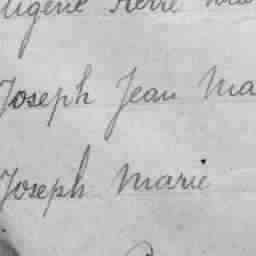 Eugène Pierre
Joseph Jean Ma
Joseph Marie